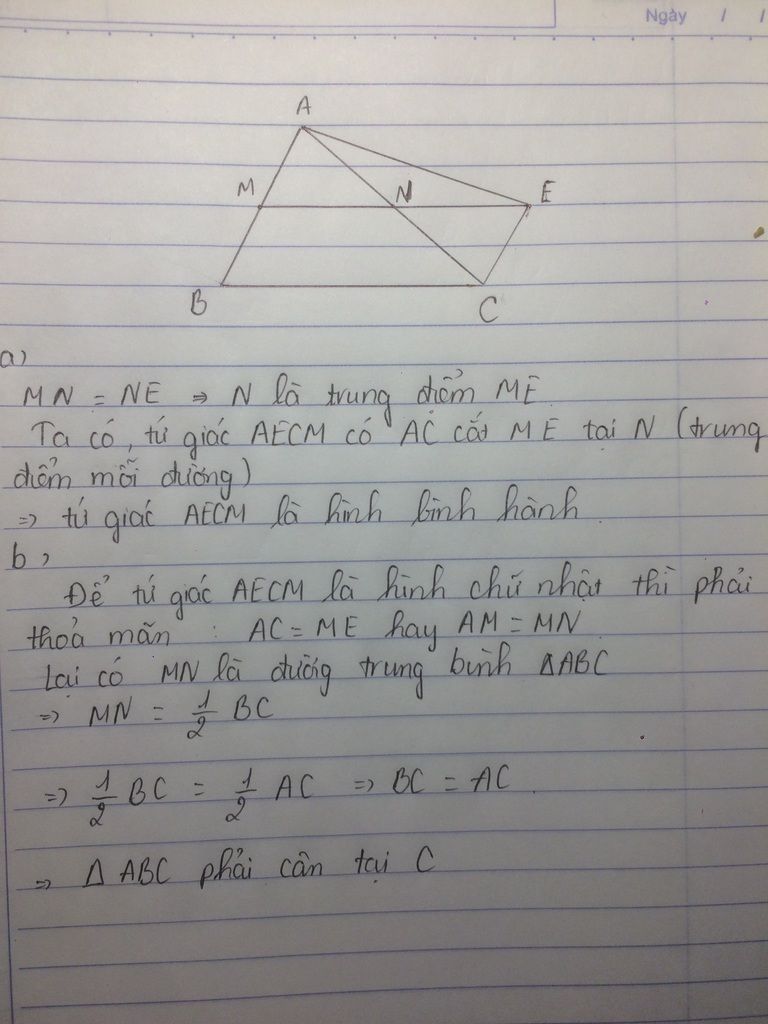 Ngày / /
A
M N E
B C
a)
MN = NE => N là trung điểm ME
Ta có, tứ giác AECM có AC cắt ME tại N (trung
điểm mỗi đường)
=> tứ giác AECM là hình bình hành.
b,
Để tứ giác AECM là hình chữ nhật thì phải
thoả mãn : AC = ME hay AM = MN
Lại có MN là đường trung bình ΔABC
=> MN = 1/2 BC
=> 1/2 BC = 1/2 AC => BC = AC.
=> Δ ABC phải cân tại C